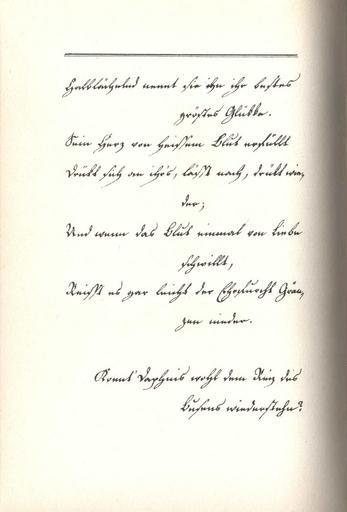 Halblächelnd nennt sie ihn ihr bestes
größtes Glükke.
Sein Herz von heissem Blut erfüllt
Drükt sich an ihrs, läßt nach, drükt wie-
der;
Und wenn das Blut einmal von Liebe
schwillt,
Reißt es gar leicht der Ehrfurcht Grän-
zen nieder.
Konnt' Daphnis wohl dem Reiz des
Busens wiederstehn?